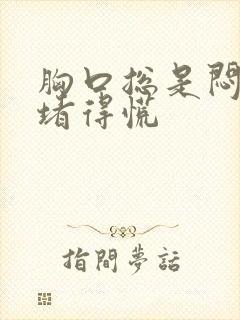 胸口总是闷
堵得慌
指間夢話